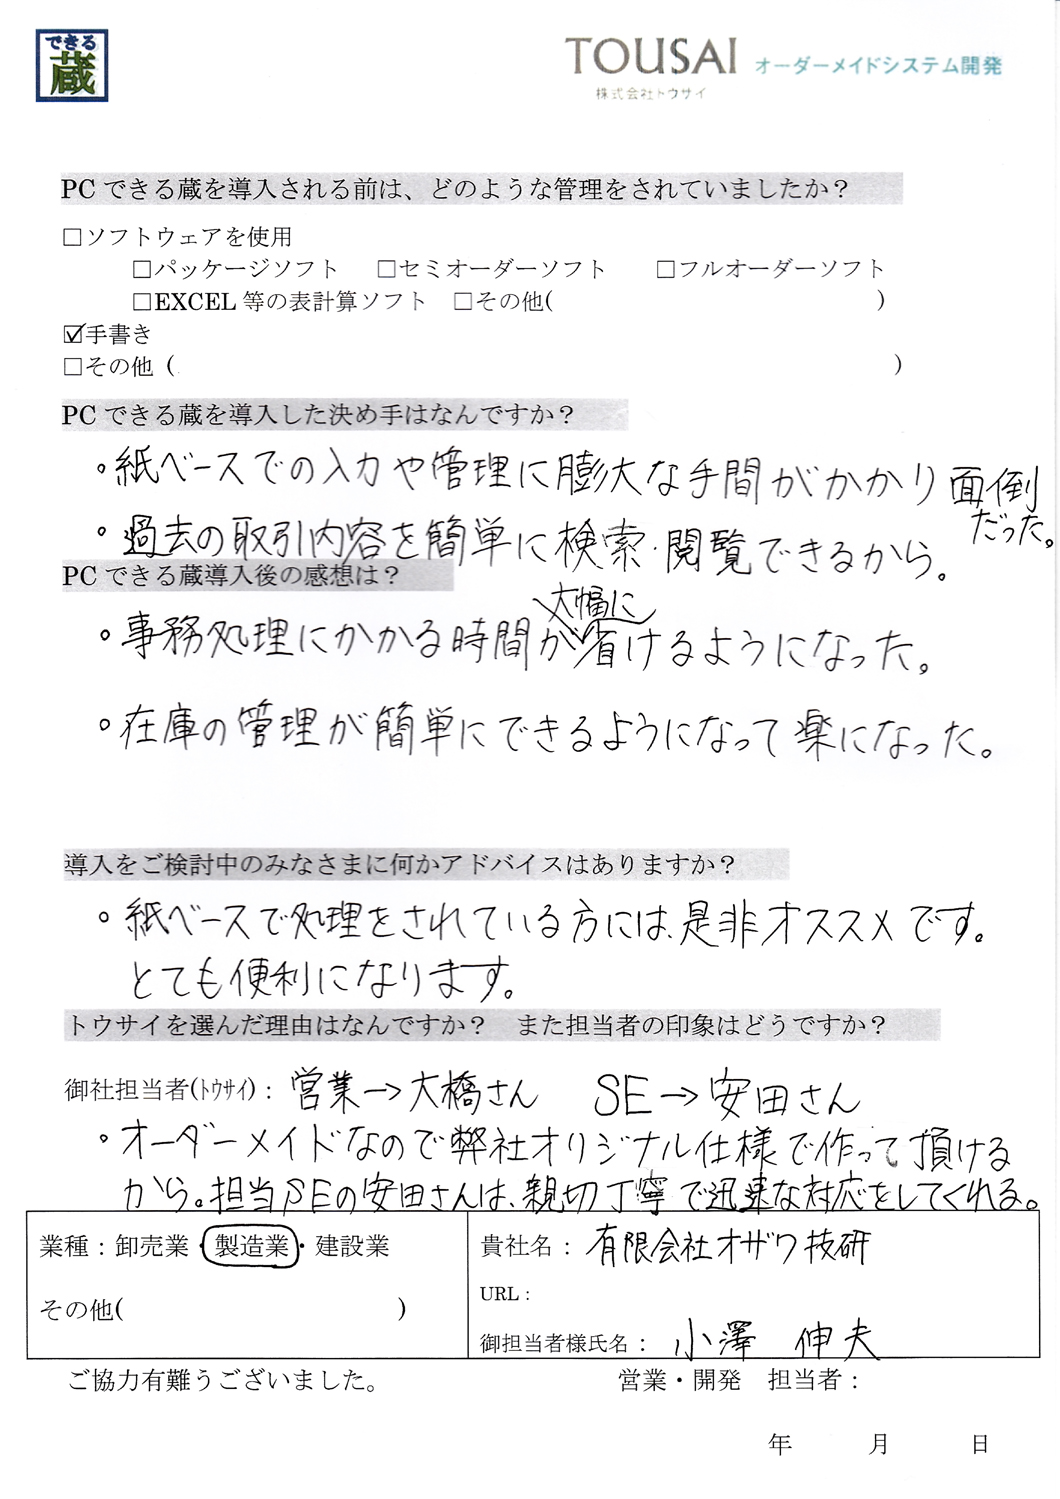 できる
蔵
TOUSAI オーダーメイドシステム開発
株式会社トウサイ
PCできる蔵を導入される前は、どのような管理をされていましたか？
□ソフトウェアを使用
□パッケージソフト □セミオーダーソフト □フルオーダーソフト
□EXCEL等の表計算ソフト □その他( )
☑手書き
□その他（ ）
PCできる蔵を導入した決め手はなんですか？
。紙ベースでの入力や管理に膨大な手間がかかり面倒
だった。
。過去の取引内容を簡単に検索・閲覧できるから。
PCできる蔵導入後の感想は？
。事務処理にかかる時間が大幅に省けるようになった。
。在庫の管理が簡単にできるようになって楽になった。
導入をご検討中のみなさまに何かアドバイスはありますか？
。紙ベースで処理をされている方には、是非オススメです。
とても便利になります。
トウサイを選んだ理由はなんですか？ また担当者の印象はどうですか？
御社担当者(ﾄｳｻｲ)：営業→大橋さん SE→安田さん
・オーダーメイドなので弊社オリジナル仕様で作って頂ける
から。担当SEの安田さんは、親切丁寧で迅速な対応をしてくれる。
業種：卸売業・製造業・建設業
その他( )
貴社名：有限会社オザワ技研
URL：
御担当者様氏名：小澤 伸夫
ご協力有難うございました。
営業・開発 担当者：
年 月 日